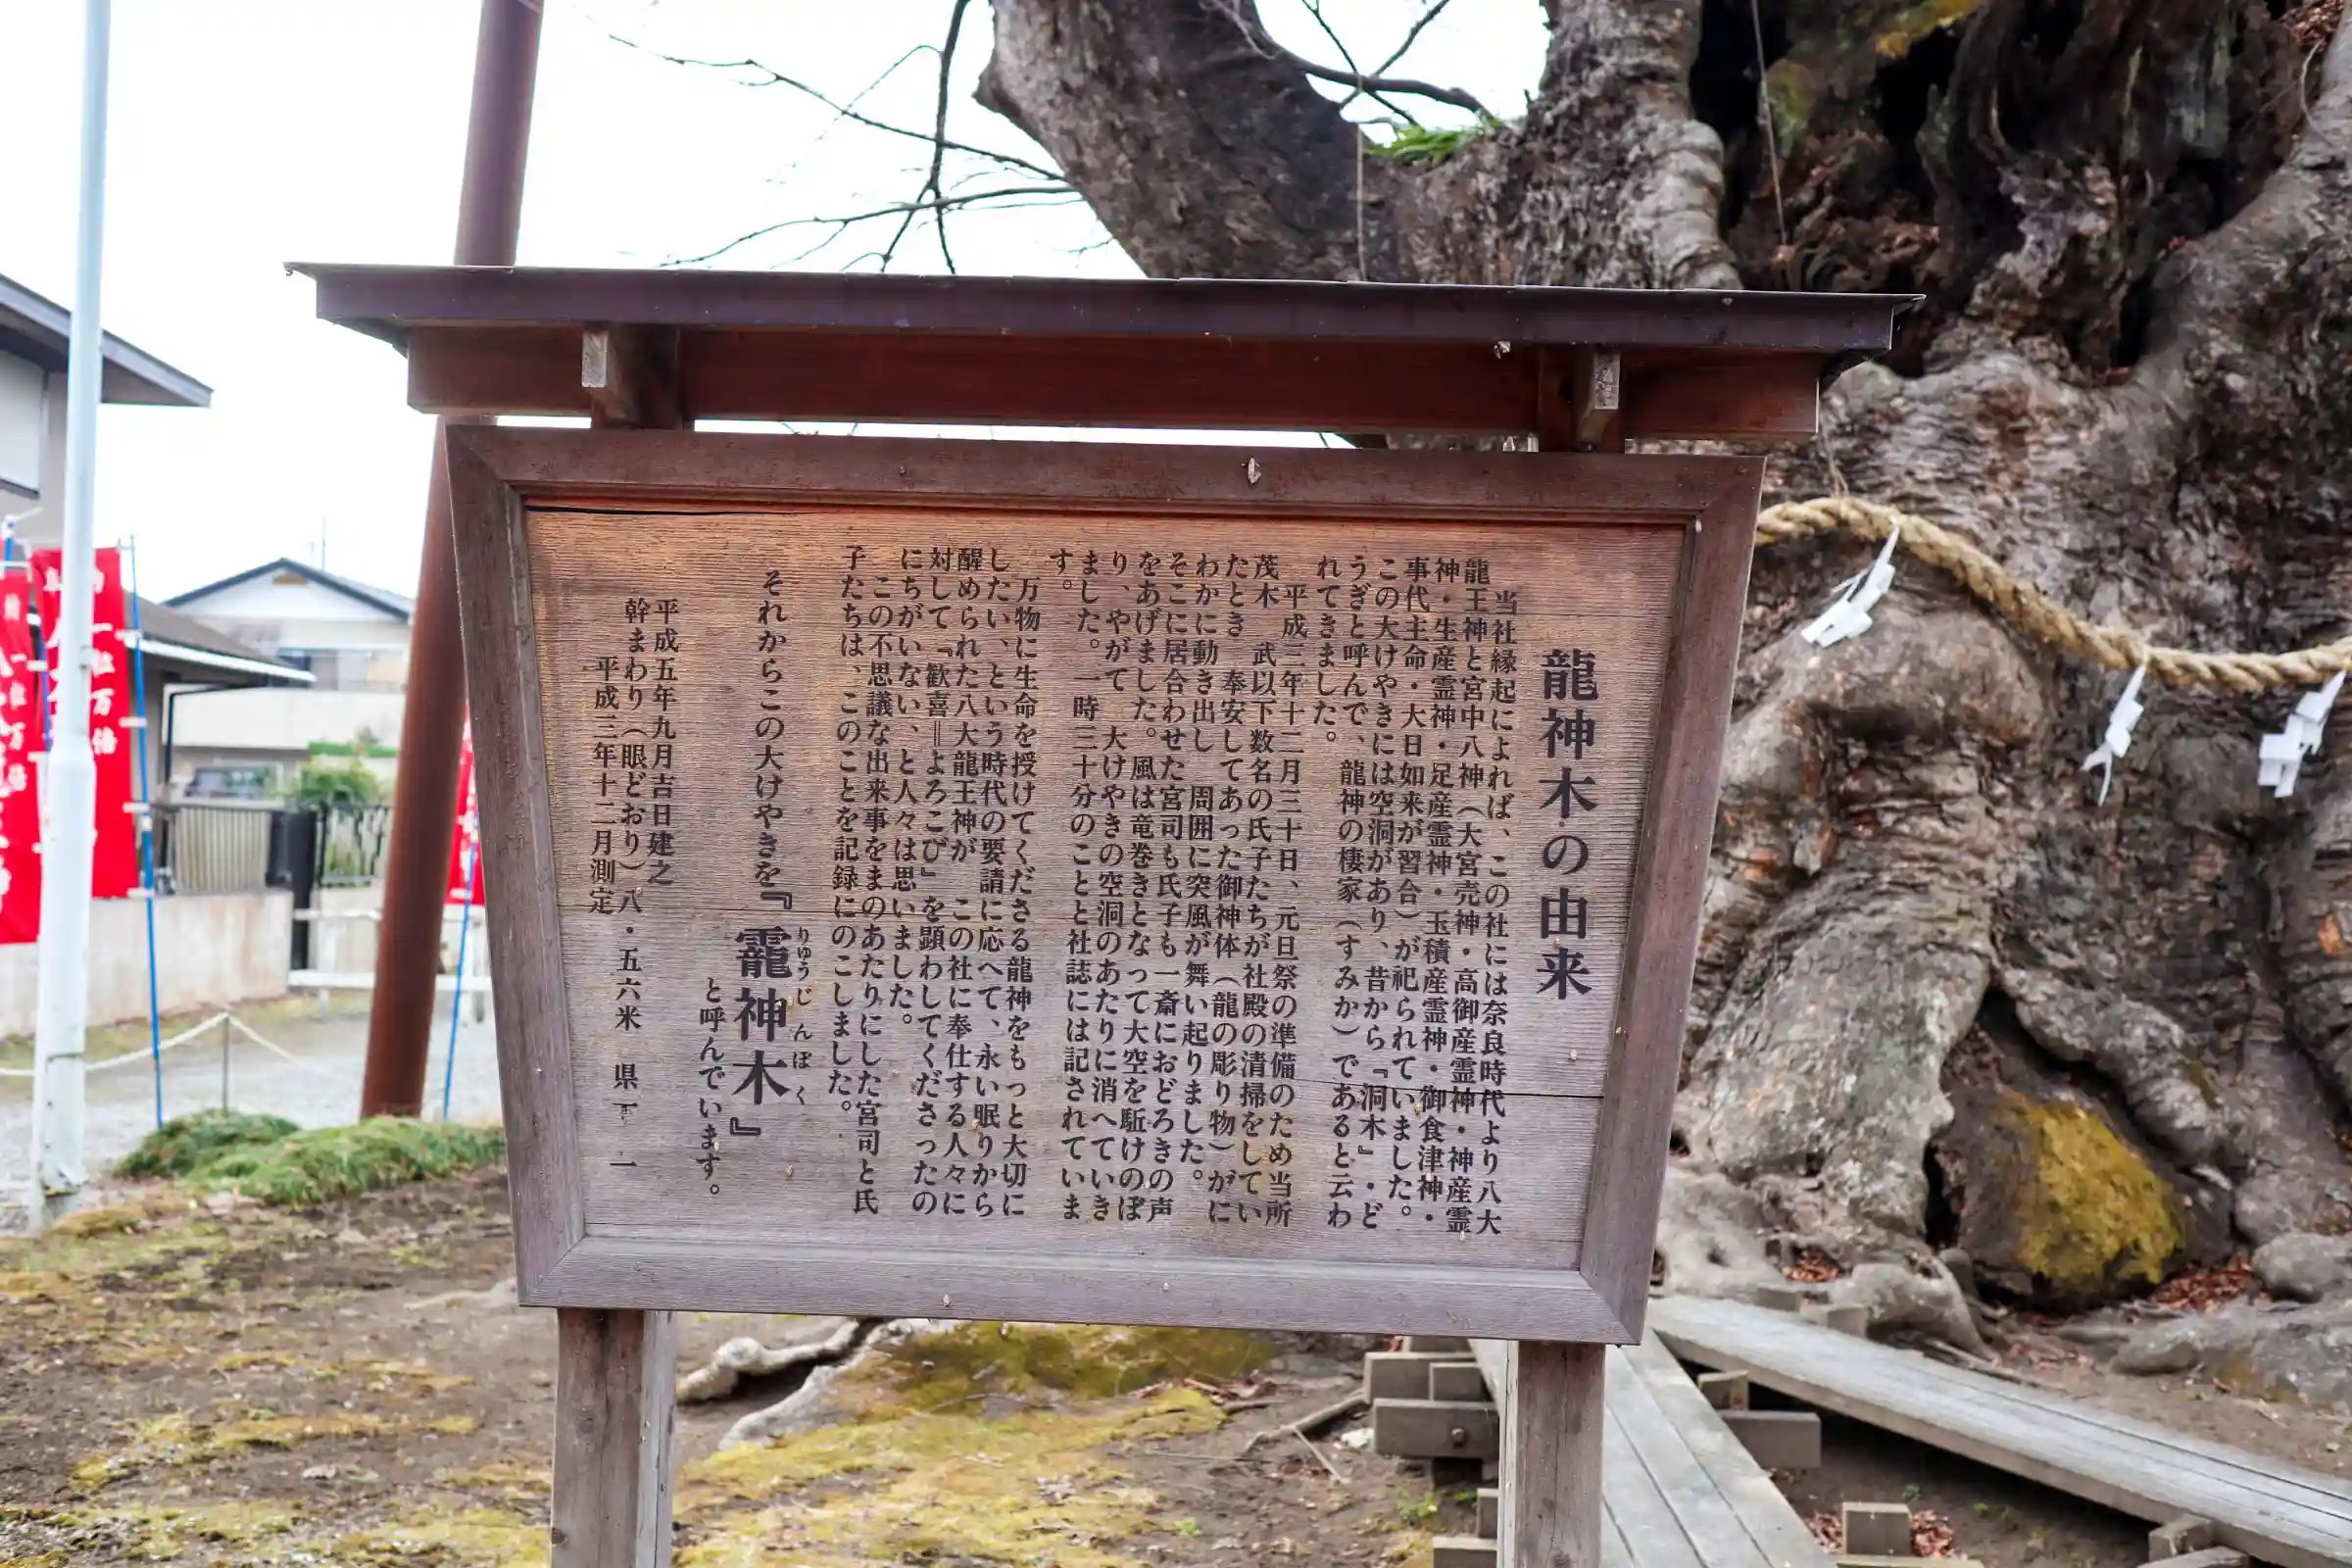 龍神木の由来
当社縁起によれば、この社には奈良時代より八大
龍王神と宮中八神（大宮売神・高御産霊神・神産霊
神・生産霊神・足産霊神・玉積産霊神・御食津神・
事代主命・大日如来が習合）が祀られていました。
この大けやきには空洞があり、昔から『洞木』・ど
うぎと呼んで、龍神の棲家（すみか）であると云わ
れてきました。
平成三年十二月三十日、元旦祭の準備のため当所
茂木 武以下数名の氏子たちが社殿の清掃をしてい
たとき 奉安してあった御神体（龍の彫り物）がに
わかに動き出し 周囲に突風が舞い起りました。
そこに居合わせた宮司も氏子も一斎におどろきの声
をあげました。風は竜巻きとなって大空を駈けのぼ
り、やがて 大けやきの空洞のあたりに消へていき
ました。一時三十分のことと社誌には記されていま
す。
万物に生命を授けてくださる龍神をもっと大切に
したい、という時代の要請に応へて、永い眠りから
醒められた八大龍王神が この社に奉仕する人々に
対して『歓喜＝よろこび』を顕わしてくださったの
にちがいない、と人々は思いました。
この不思議な出来事をまのあたりにした宮司と氏
子たちは、このことを記録にのこしました。
それからこの大けやきを『龗神木』
りゆうじんぼく
と呼んでいます。
平成五年九月吉日建之
幹まわり（眼どおり）八・五六米 県下 一
平成三年十二月測定